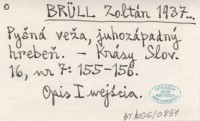 BRÜLL Zoltán 1937...
Pyšná veža, juhozápadný
hrebeň. – Krásy Slov.
16, nr 7: 155-156.
Opis I wejścia.
BT/006/0851